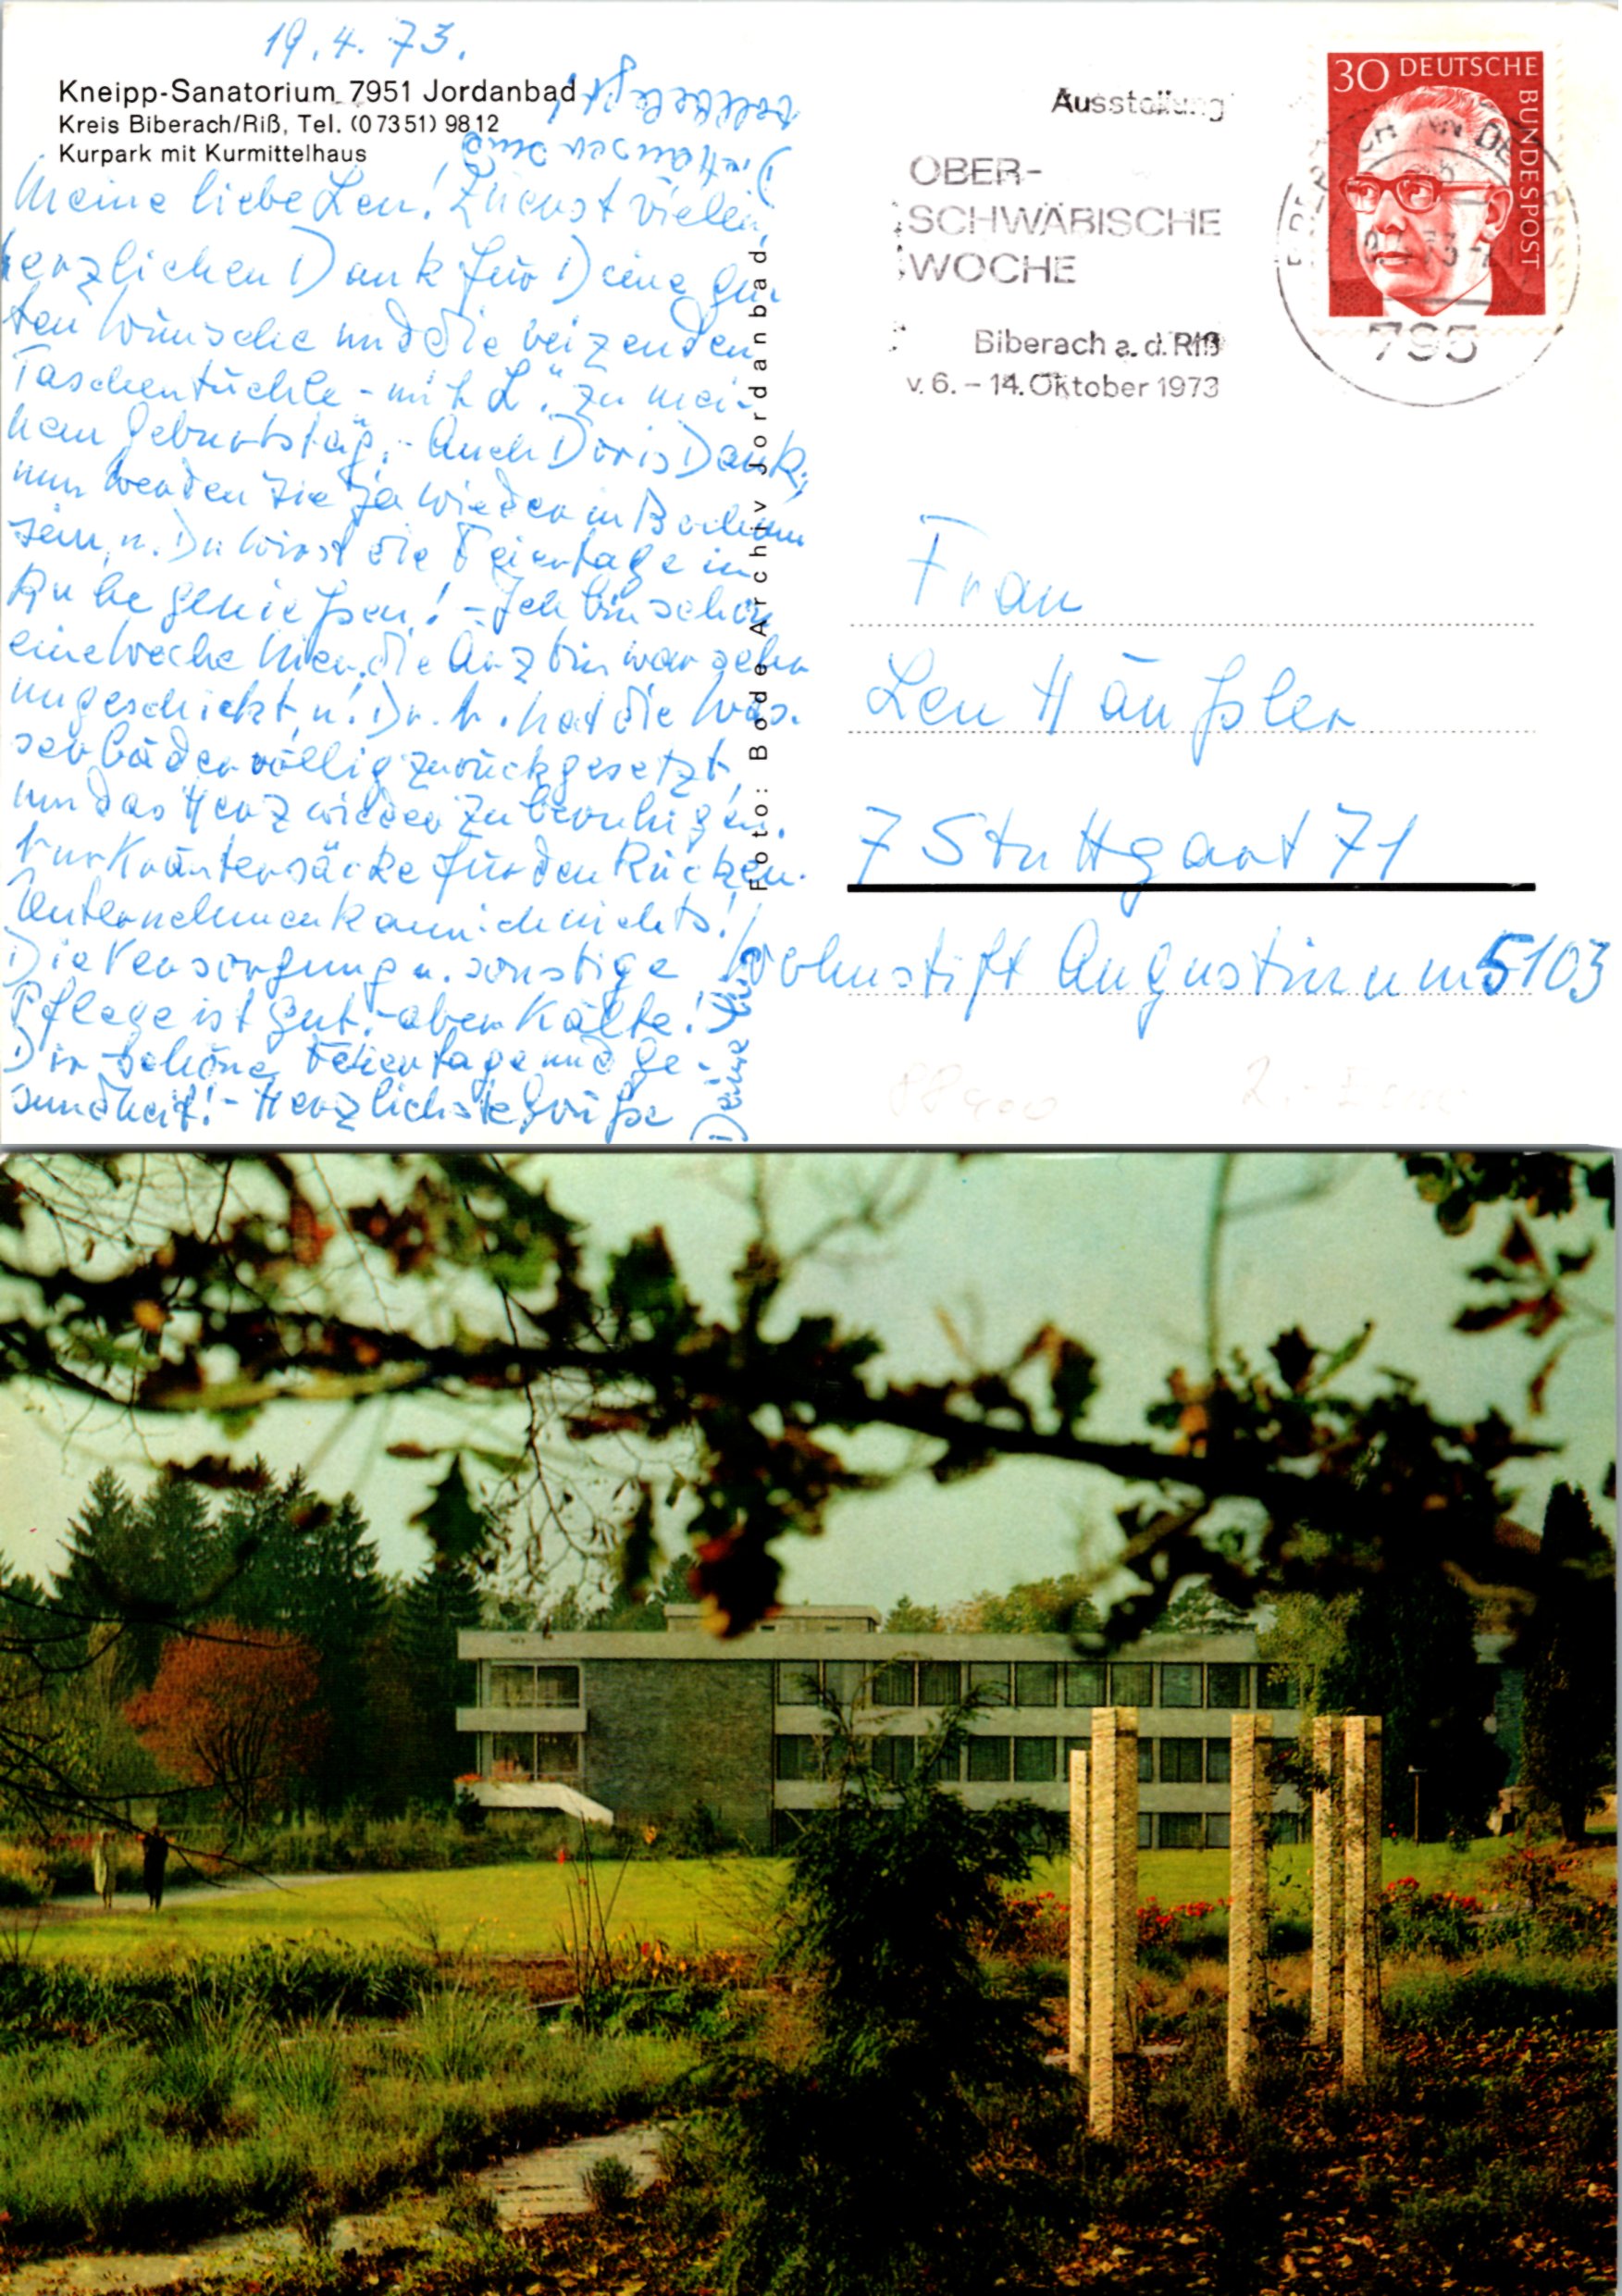 19.4.73.
Kneipp-Sanatorium 7951 Jordanbad
Kreis Biberach/Riß, Tel. (07351) 9812
Kurpark mit Kurmittelhaus
Die Häuser sind
vollbelegt!
Meine liebe Len! Zuerst vielen,
herzlichen Dank für Deine gu-
ten Wünsche und die reizenden
Taschentüchle - mit L." zu mei-
nem Geburtstag. - Auch Doris Dank,
nun werden Sie ja wieder in Bochum
sein, u. Du wirst die Feiertage in
Ruhe genießen! - Ich bin schon
eine Woche hier, die Ärztin war sehr
ungeschickt, u. Dr. h. hat die Was-
serbäder völlig zurückgesetzt,
um das Herz wieder zu beruhigen.
Nur Kräutersäcke für den Rücken.
Unternehmen kann ich nichts!
Die Versorgung u. sonstige
Pflege ist gut, - aber Kälte!
Dir schöne Feiertage und Ge-
sundheit! - Herzlichste Grüße
Deine
Foto: Bode Archiv Jordanbad
Ausstellung
OBER-
SCHWÄBISCHE
WOCHE
Biberach a. d. Riß
v. 6. - 14. Oktober 1973
30 DEUTSCHE
BUNDESPOST
795
Frau
Len Häußler
7 Stuttgart 71
Wohnstift Augustinum 5103